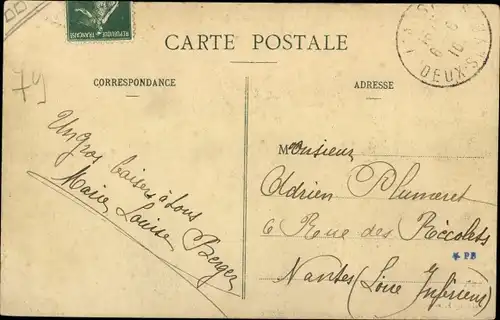 REPUBLIQUE FRANÇAISE
CARTE POSTALE
DEUX-SÈVRES
79
CORRESPONDANCE
ADRESSE
Un gros baiser à tous
Marie Louise Berger
Monsieur
Adrien Plumeret
6 Rue des Récolets
* PB
Nantes (Loire Inférieure)